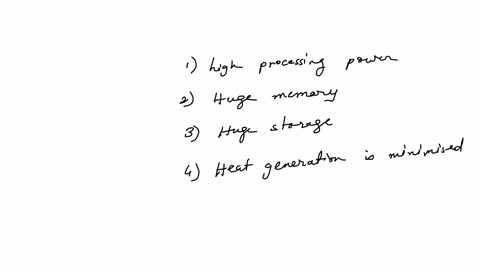 1) high processing power
2) Huge memory
3) Huge storage
4) Heat generation is minimised